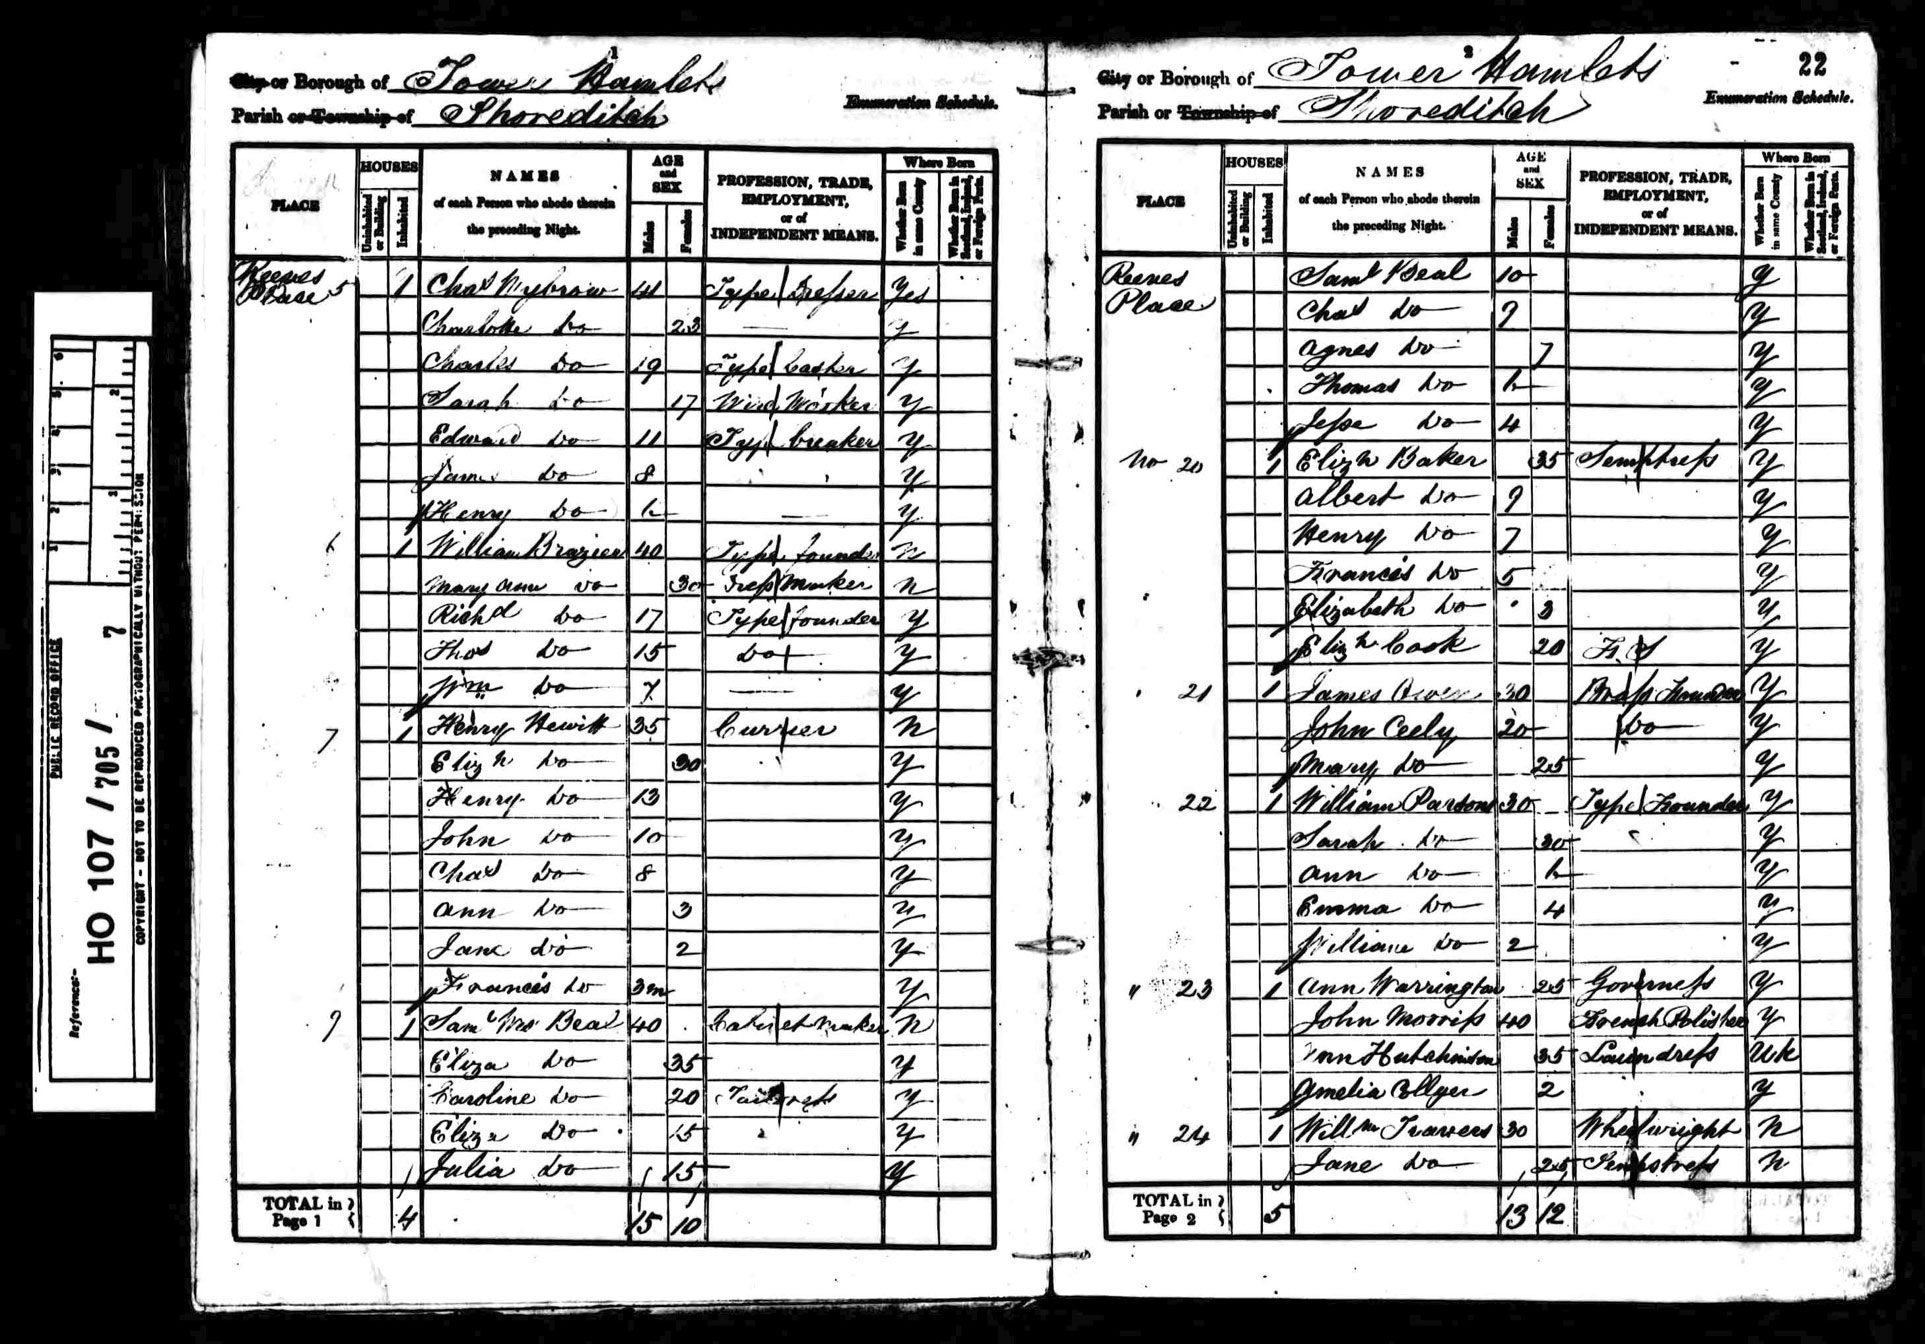 PUBLIC RECORD OFFICE
Reference:-
HO 107 / 705 / 7
COPYRIGHT - NOT TO BE REPRODUCED PHOTOGRAPHICALLY WITHOUT PERMISSION
1
City or Borough of Tower Hamlets
Parish or Township of Shoreditch
Enumeration Schedule.
PLACE
HOUSES
Uninhabited or Building
Inhabited
NAMES
of each Person who abode therein
the preceding Night.
AGE and SEX
Males
Females
PROFESSION, TRADE,
EMPLOYMENT,
or of
INDEPENDENT MEANS.
Where Born
Whether Born in same County
Whether Born in Scotland, Ireland, or Foreign Parts.
Reeves Place 5 1 Chas Wybrow 41 Type Dresser Yes
Charlotte Do 23 y
Charles Do 19 Type Caster y
Sarah Do 17 Worker y
Edward Do 11 Type breaker y
James Do 8 y
Henry Do 6 y
6 1 William Brazier 40 Type founder n
Mary Ann Do 30 Maker n
Richd Do 17 Type founder y
Thos Do 15 Do y
Wm Do 7 y
7 1 Henry Hewitt 35 Currier n
Elizh Do 30 y
Henry Do 13 y
John Do 10 y
Chas Do 8 y
Ann Do 3 y
Jane Do 2 y
Frances Do 3m y
9 1 Saml Beal 40 Cabinet maker n
Eliza Do 35 y
Caroline Do 20 Tailoress y
Eliza Do 15 y
Julia Do 15 y
TOTAL in Page 1 4 15 10
2
22
City or Borough of Tower Hamlets
Parish or Township of Shoreditch
Enumeration Schedule.
PLACE
HOUSES
Uninhabited or Building
Inhabited
NAMES
of each Person who abode therein
the preceding Night.
AGE and SEX
Males
Females
PROFESSION, TRADE,
EMPLOYMENT,
or of
INDEPENDENT MEANS.
Where Born
Whether Born in same County
Whether Born in Scotland, Ireland, or Foreign Parts.
Reeves Place Saml Beal 10 y
Chas Do 9 y
Agnes Do 7 y
Thomas Do 6 y
Jesse Do 4 y
No 20 1 Elizh Baker 35 Sempstress y
Albert Do 9 y
Henry Do 7 y
Francis Do 5 y
Elizabeth Do 3 y
Elizh Cook 20 F S y
21 1 James Owen 30 Brass Founder y
John Ceely 20 Do y
Mary Do 25 y
22 1 William Parsons 30 Type Founder y
Sarah Do 30 y
Ann Do 6 y
Emma Do 4 y
William Do 2 y
" 23 1 Ann Warrington 25 Governess y
John Morriss 40 French Polisher y
Ann Hutchinson 35 Laundress
Amelia Ollyer 2 y
" 24 1 Willm Travers 30 Wheelwright n
Jane Do 25 Sempstress n
TOTAL in Page 2 5 13 12